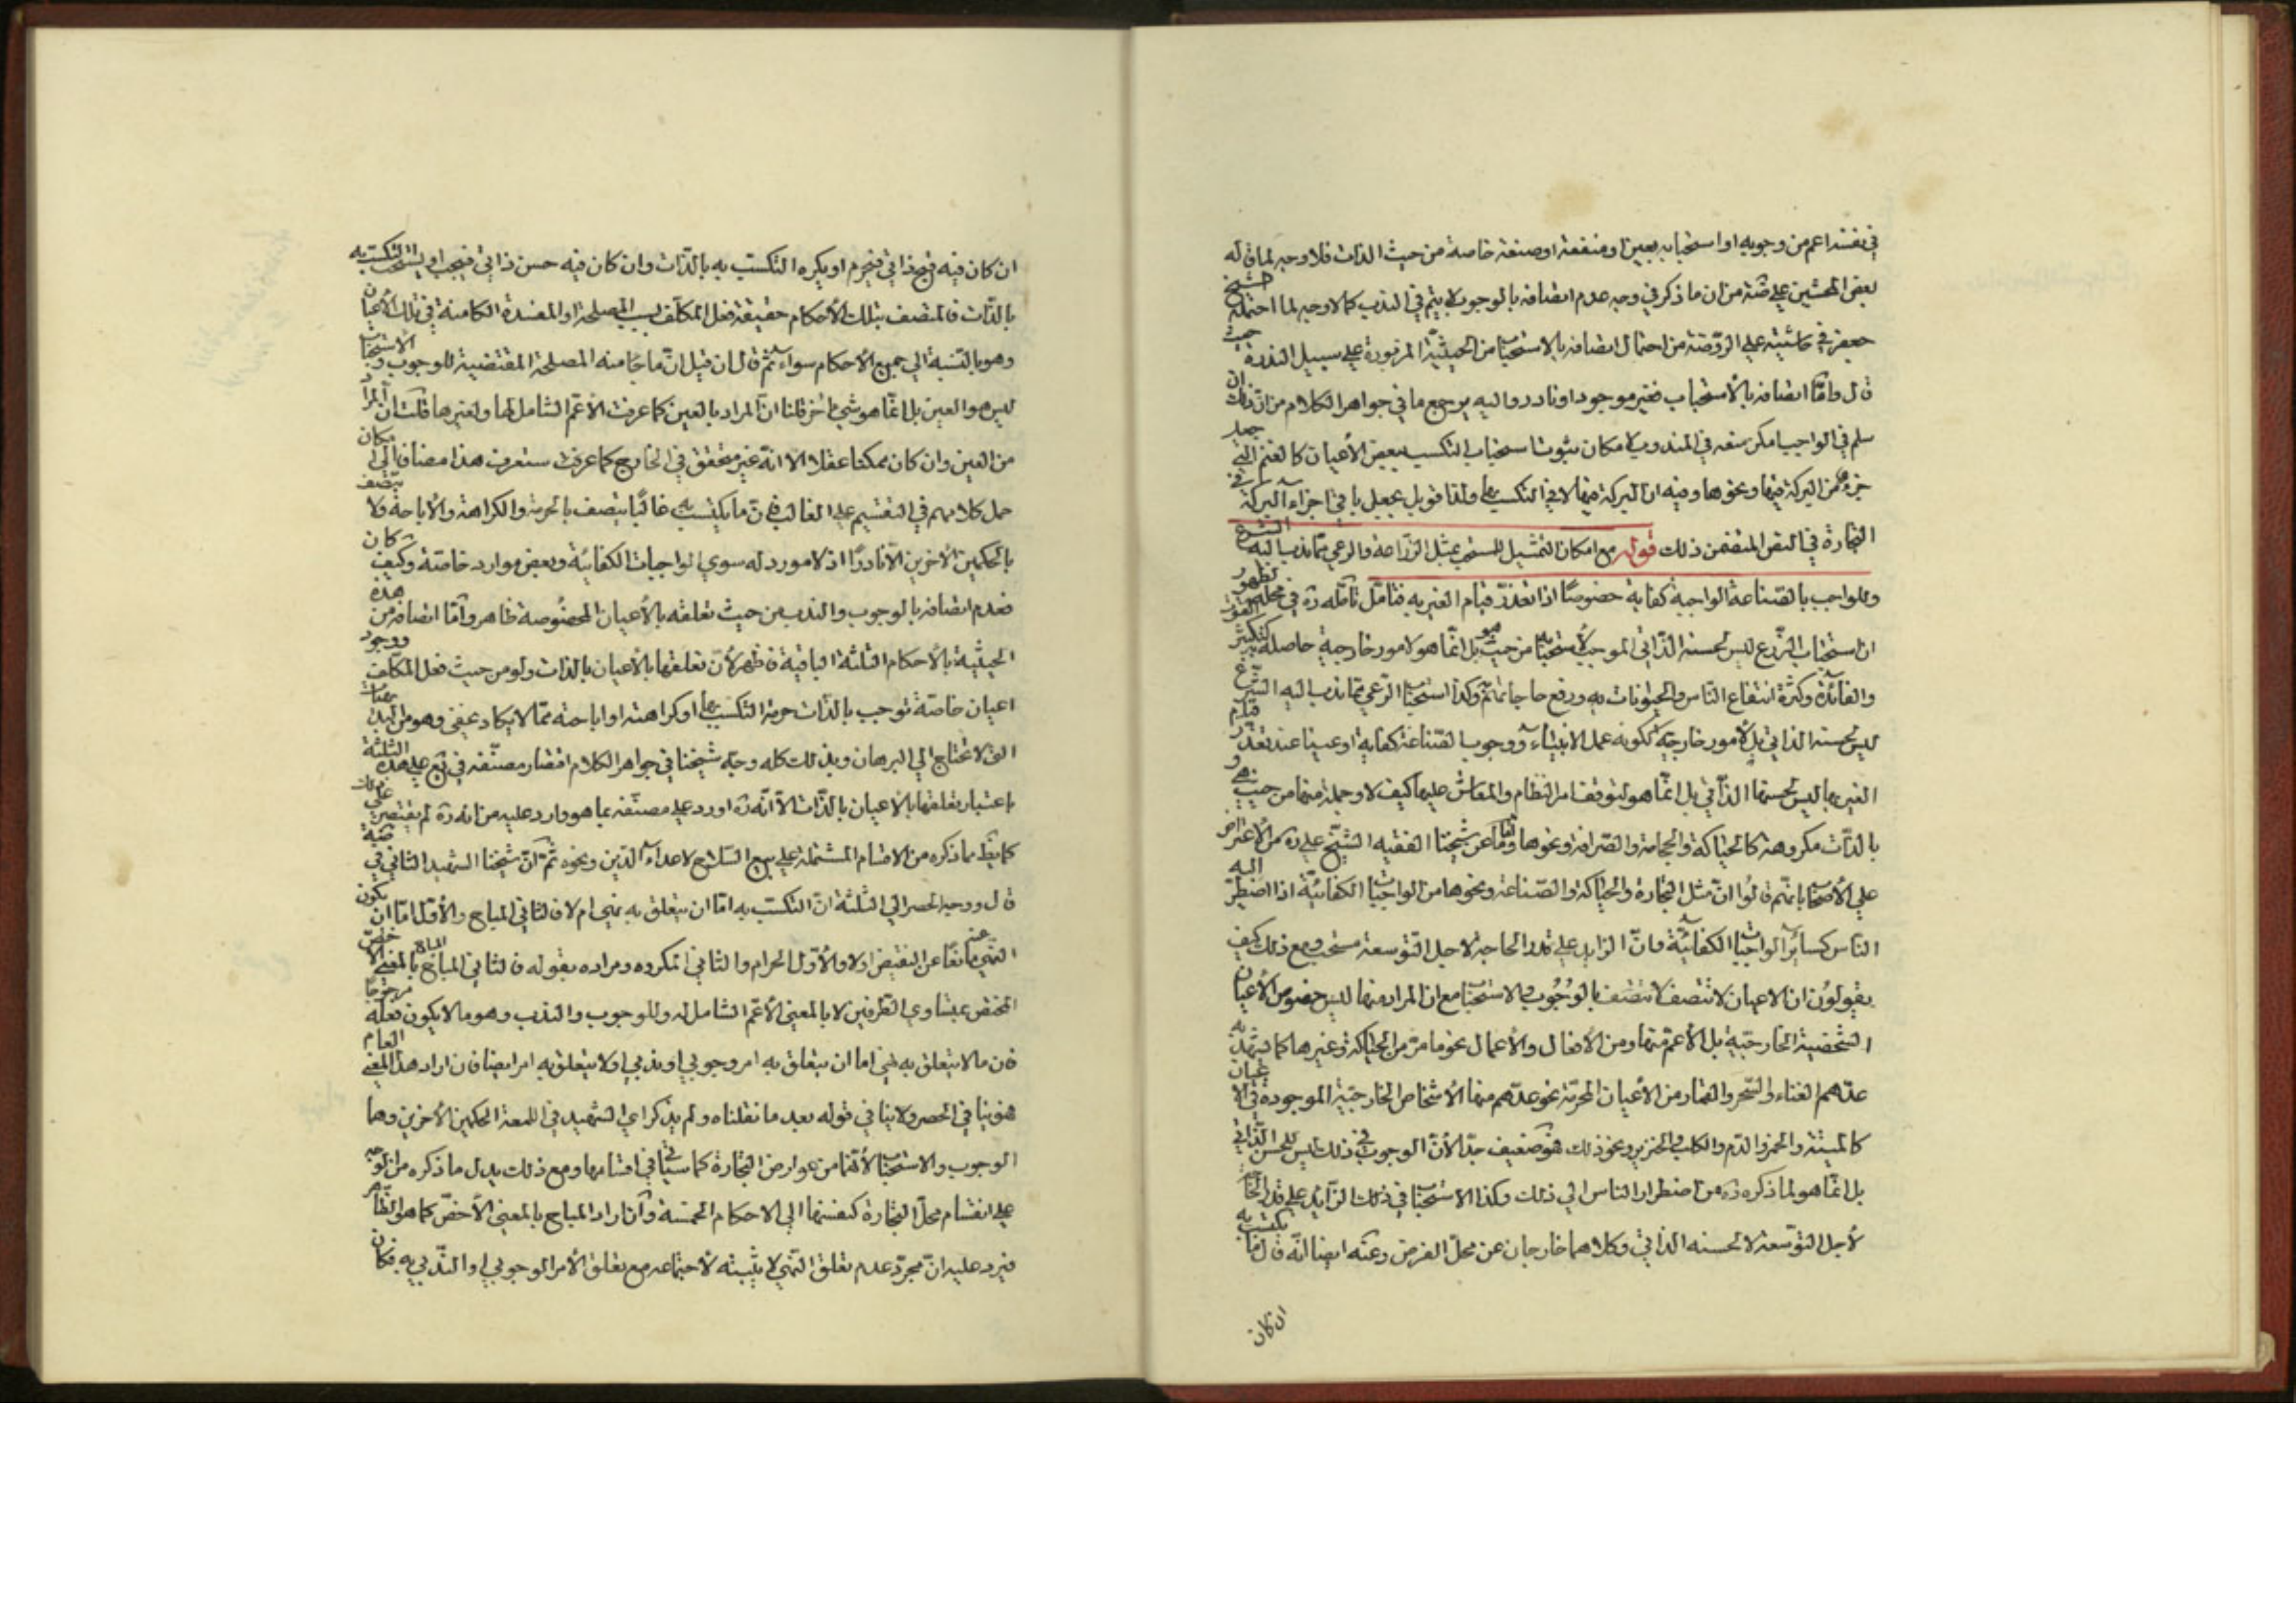 في نفسه اعم من وجوبه او استحبابه بعين او منفعة او صنعة خاصة من حيث الذات فلا وجه لما قاله
بعض المحشين على ضة من ان ما ذكر في وجه عدم اتصافه بالوجوب لا يتم في الندب كما لا وجه لما احتمله الشيخ
جعفر في حاشيته على الروضة من احتمال اتصافه بالاستحباب من الحيثية المزبورة على سبيل الندرة حيث
قال واما اتصافه بالأستحباب فغير موجود او نادر واليه يرجع ما في جواهر الكلام من ان ذلك ان
سلم في الواجب امكن منعه في المندوب لامكان ثبوت استحباب التكسب ببعض الأعيان كالغنم التي جعل
جزء من البركة فيها ونحوها وفيه ان البركة فيها لا في التكسب بها ولذا قوبل بجعل باقي اجزاء البركة في
التجارة في النص المتضمن ذلك قوله مع امكان التمثيل للمستحب بمثل الزراعة والرعي مما ندب اليه الشرع
وللواجب بالصناعة الواجبة كفاية خصوصًا اذا تعذر قيام الغير به فتامل تأمله ره في محله لظهور
ان استحباب الزرع ليس لحسنه الذاتي الموجب لأستحبابه من حيث هو بل انما هو لامور خارجية حاصلة لتكثير القوت
والفائدة وكثرة انتفاع الناس والحيوانات به ورفع حاجاتهم وكذا استحباب الرعي مما ندب اليه الشرع
ليس لحسنه الذاتي بل لأمور خارجية ككونه عمل الانبياء ووجوب الصناعة كفاية او عينا عند تعذر قيام
الغير بها ليس لحسنها الذاتي بل انما هو لتوقف امر النظام والمعاش عليها كيف لا وجملة منها من حيث هي و
بالذات مكروهة كالحياكة والحجامة والصرافة ونحوها وما عن شيخنا الفقيه الشيخ علي ره من الأعتراض
على الأصحاب بانهم قالوا ان مثل التجارة والحياكة والصناعة ونحوها من الواجبات الكفائية اذا اضطر اليه
الناس كسائر الواجبات الكفائية فان الزايد على قدر الحاجة لاجل التوسعة مستحب ومع ذلك كيف
يقولون ان الاعيان لا تتصف بالوجوب والاستحباب مع ان المراد منها ليس خصوص الأعيان
الشخصية الخارجية بل الأعم منها ومن الأفعال والأعمال نحو ما مر من الحياكة وغيرها كما يشهد به
عدهم الغناء والسحر والقمار من الأعيان المحرمة نحو عدهم منها الأشخاص الخارجية الموجودة في الاعيان
كالميتة والخمر والدم والكلب والخنزير ونحو ذلك فهو ضعيف جدا لأن الوجوب في ذلك ليس للحسن الذاتي
بل انما هو لما ذكره ره من اضطرار الناس الى ذلك وكذا الاستحباب في ذلك الزايد على قدر الحاجة
لأجل التوسعة لا لحسنه الذاتي وكلاهما خارجان عن محل الفرض وعنه ايضا انه قال ما يكتسب به
ان كان
ان كان فيه قبح ذاتي فيحرم او يكره التكسب به بالذات وان كان فيه حسن ذاتي فيجب او يستحب التكسب به
بالذات فالمتصف بتلك الأحكام حقيقة فعل المكلف بسبب المصلحة او المفسدة الكامنة في تلك الأعيان
وهو بالنسبة الى جميع الأحكام سواء ثم قال ان قيل ان ما جاء منه المصلحة المقتضية للوجوب والأستحباب
ليس هو العين بل انما هو شيء اخر قلنا ان المراد بالعين كما عرفت الاعم الشامل لها ولغيرها قلت ان المراد
من العين وان كان ممكنا عقلا الا انه غير متحقق في الخارج كما عرفت وستعرف هذا مضافا الى امكان
حمل كلامهم في التقسيم على الغالب فان ما يكتسب به غالبًا يتصف بالحرمة والكراهة والأباحة ولا يتصف
بالحكمين الأخرين الا نادرًا اذ لا مورد له سوى الواجبات الكفائية وبعض موارد خاصة وكيف كان
فعدم اتصافه بالوجوب والندب من حيث تعلقه بالأعيان المخصوصة ظاهر واما اتصافه من هذه
الحيثية بالأحكام الثلثة الباقية فاظهر لأن تعلقها بالأعيان بالذات ولو من حيث فعل المكلف ووجود
اعيان خاصة توجب بالذات حرمة التكسب بها او كراهته او اباحته مما لا يكاد يخفى وهو من البديهيات
التي لا تحتاج الى البرهان وبذلك كله وجه شيخنا في جواهر الكلام اقتصار مصنفه في يع على هذه الثلثة
باعتبار تعلقها بالأعيان بالذات الا انه ره اورد على مصنفه بما هو وارد عليه من انه ره لم يقتصر على ذلك
كما يظهر مما ذكره من الاقسام المشتملة على بيع السلاح لاعداء الدين ونحوه ثم ان شيخنا الشهيد الثاني في ضة
قال ووجه الحصر في الثلثة ان التكسب به اما ان يتعلق به نهي ام لا فالثاني المباح والأول اما ان يكون
النهي عنه مانعا عن النقيض اولا والأول الحرام والثاني المكروه ومراده بقوله فالثاني المباح المباح بالمعنى الأخص
المختص بمتساوي الطرفين لا بالمعنى الأعم الشامل له وللوجوب والندب وهو ما لا يكون فعله مرجوحًا
فان ما لا يتعلق به نهي اما ان يتعلق به امر وجوبي او ندبي او لا يتعلق به امر ايضا فان اراد هذا المعنى العام
فهو ينافي الحصر ولا ينافي قوله بعد ما نقلناه ولم يذكر اي الشهيد في اللمعة الحكمين الأخرين وهما
الوجوب والاستحباب لأنهما من عوارض التجارة كما سيأتي في اقسامها ومع ذلك يدل ما ذكره من الوجه
على انقسام محل التجارة كنفسها الى الاحكام الخمسة وان اراد المباح بالمعنى الأخص كما هو الظاهر
فيرد عليه ان مجرد عدم تعلق النهي لا يثبته لاجتماعه مع تعلق الأمر الوجوبي او الندبي به فكان